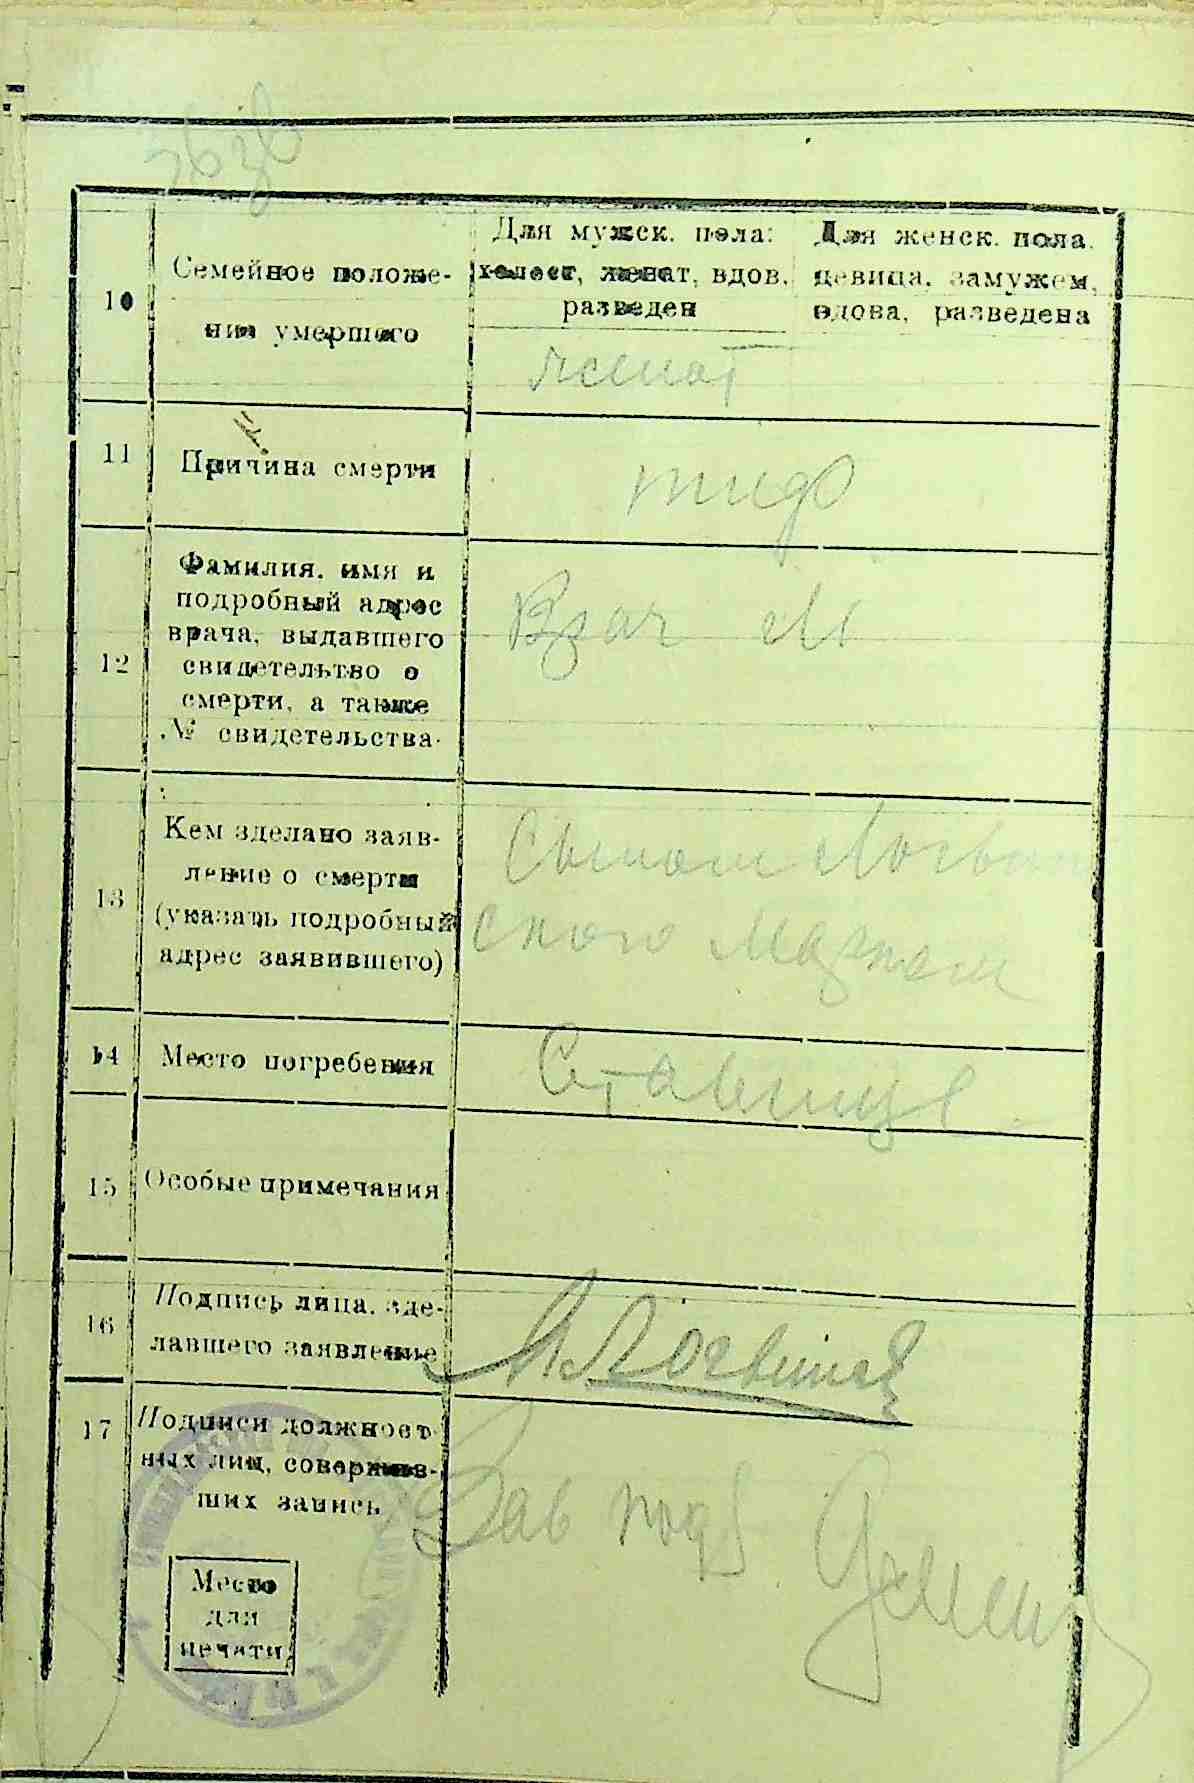 10
Семейное положе-
ние умершего
Для мужск. пола:
холост, женат, вдов,
разведен
Для женск. пола.
девица, замужем,
вдова, разведена
женат
11
Причина смерти
тиф
12
Фамилия, имя и
подробный адрес
врача, выдавшего
свидетельтво о
смерти, а также
№ свидетельства.
Врач М
13
Кем зделано заяв-
ление о смерти
(указать подробный
адрес заявившего)
Сыном Логвин
ского
14
Место погребения
Ставище
15
Особые примечания
16
Подпись лица, зде-
лавшего заявление
М Логвинск
17
Подписи должност
ных лиц, совершив-
ших запись
Зав
Место
для
печати